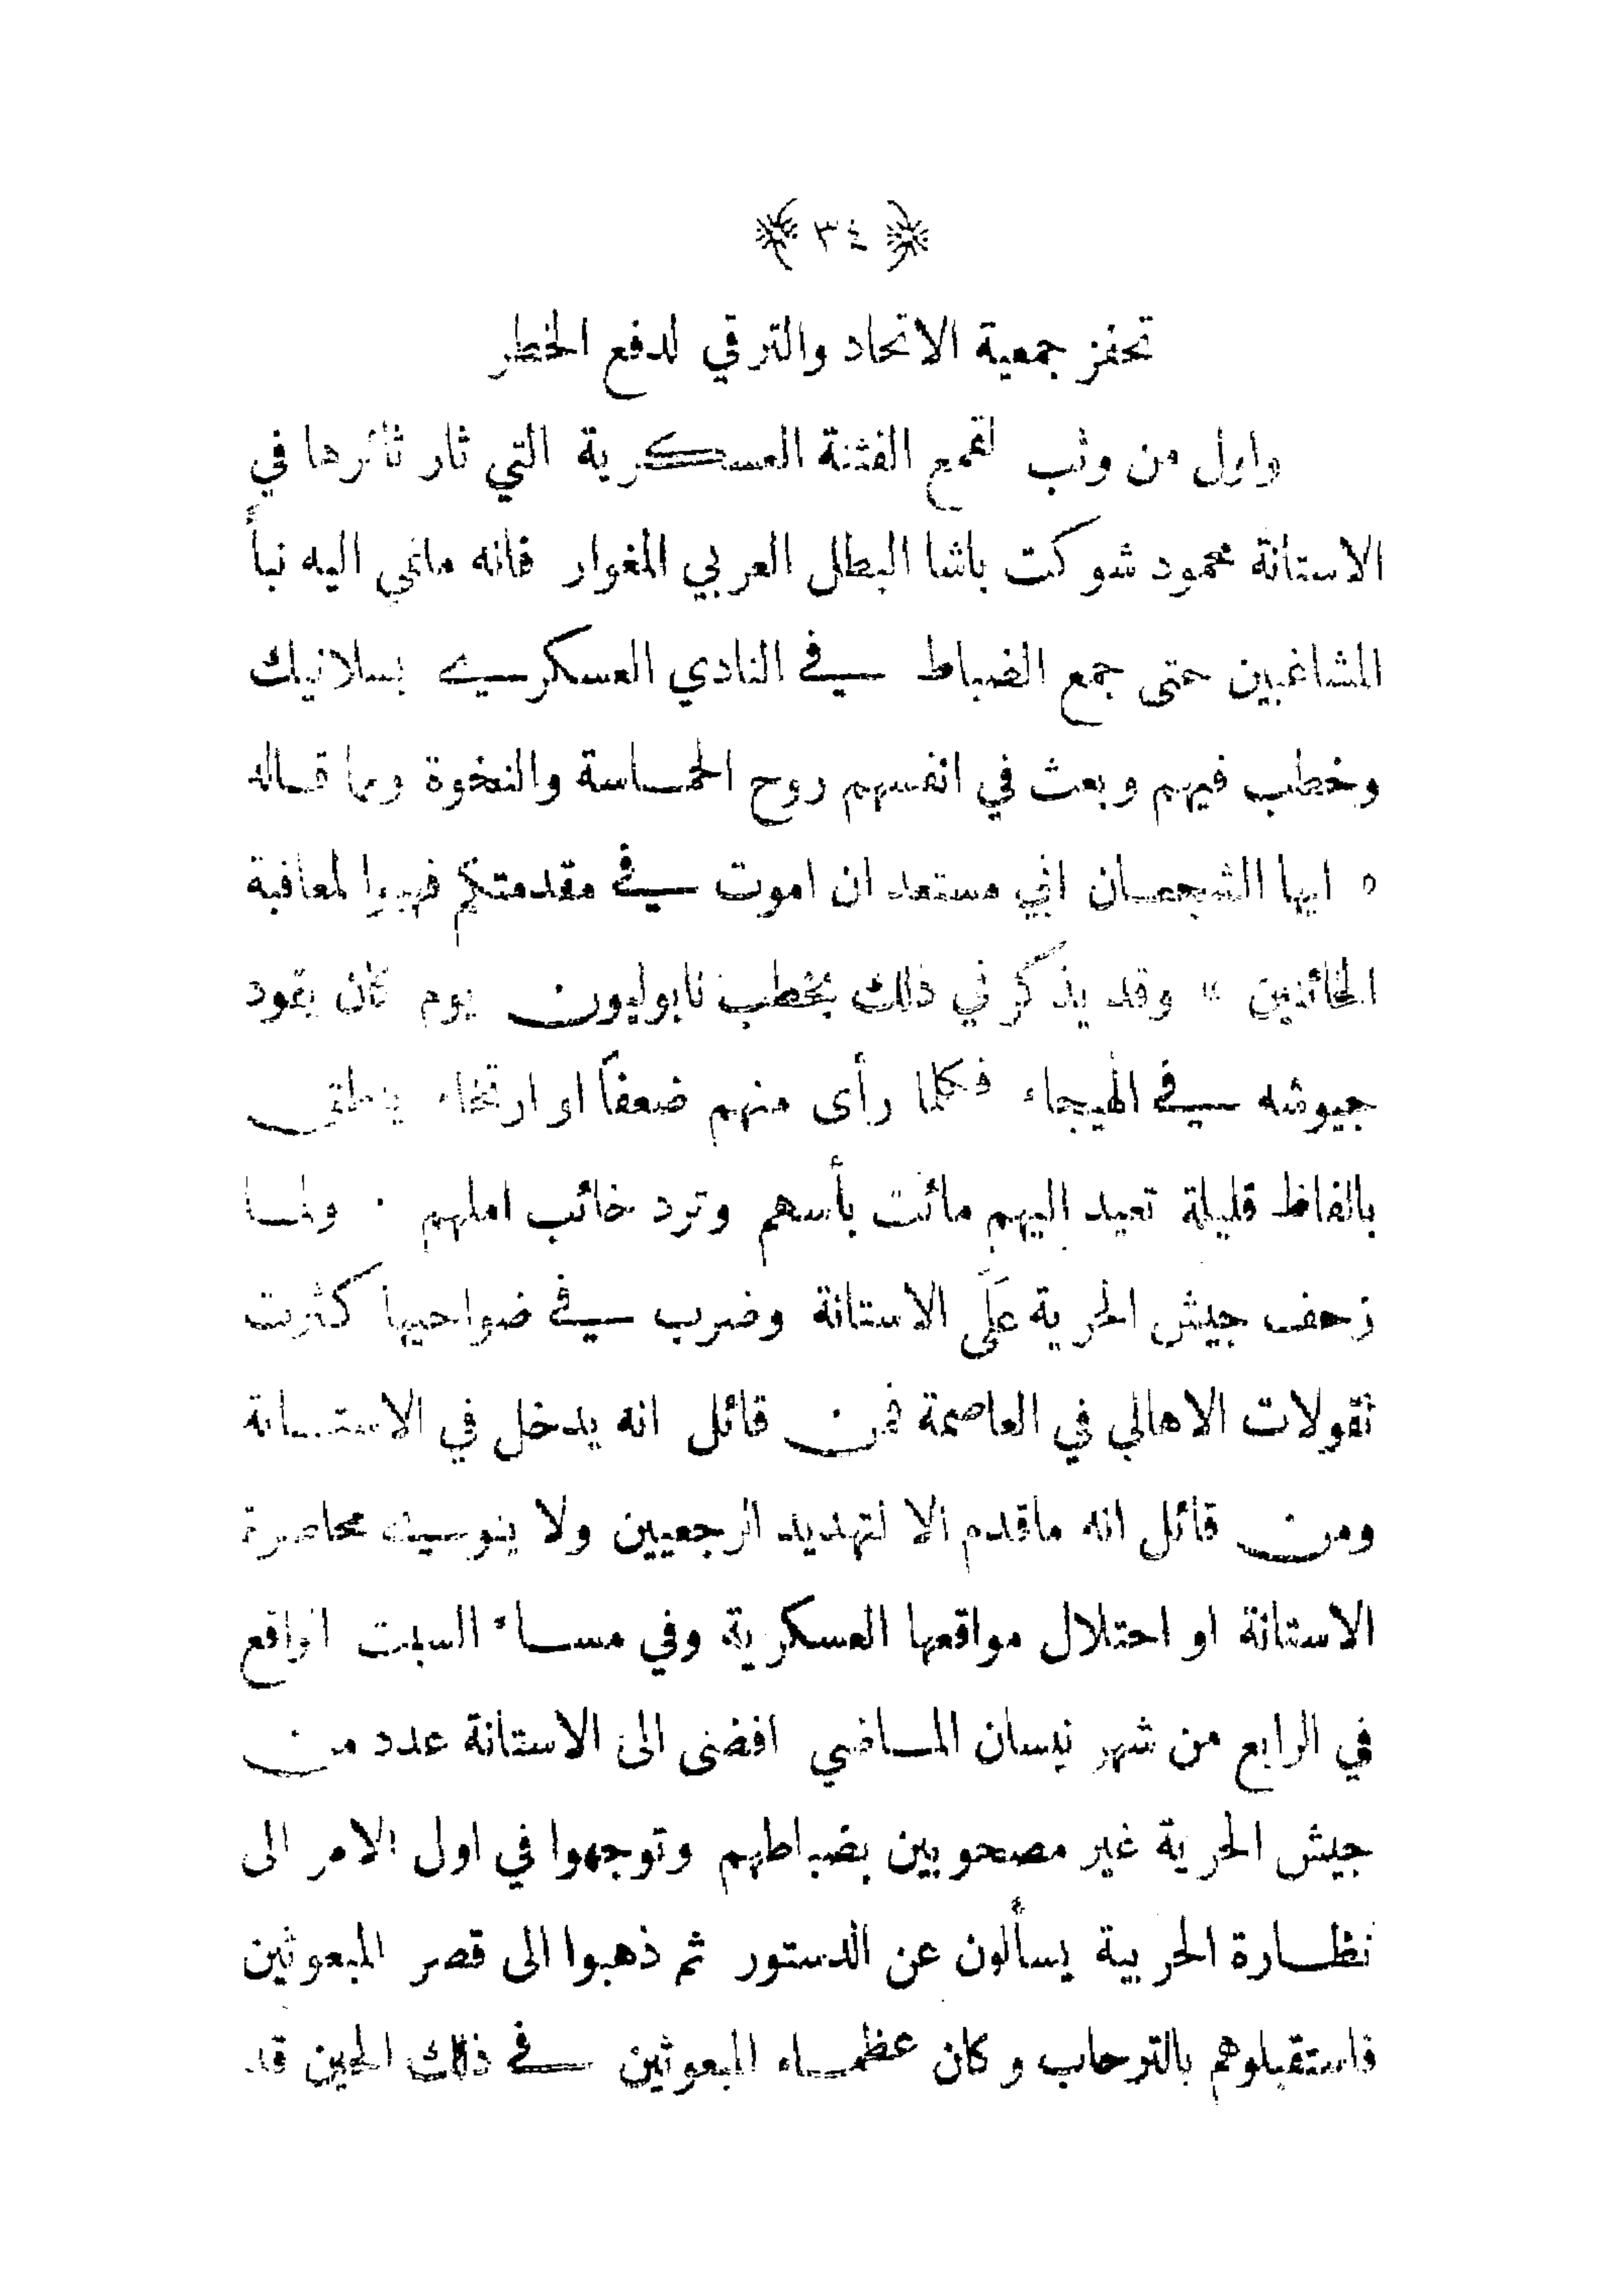 ﴿ ٣٤ ﴾
تحفز جمعية الاتحاد والترقي لدفع الخطر
واول من وثب لقمع الفتنة العسكرية التي ثار ثائرها في
الاستانة محمود شوكت باشا البطل العربي المغوار فانه مانمي اليه نبأ
المشاغبين حتى جمع الضباط في النادي العسكري بسلانيك
وخطب فيهم وبعث في انفسهم روح الحماسة والنخوة ومما قاله
« ايها الشجعان اني مستعد ان اموت في مقدمتكم فهبوا لمعاقبة
الخائنين » وقد يذكرني ذلك بخطب نابوليون يوم كان يقود
جيوشه في الهيجاء فكلما رأى منهم ضعفاً او ارتخاء ينطق
بالفاظ قليلة تعيد اليهم مائت بأسهم وترد خائب املهم . ولما
زحف جيش الحرية عَلَى الاستانة وضرب في ضواحيها كثرت
تقولات الاهالي في العاصمة فمن قائل انه يدخل في الاستانة
ومن قائل انه ماقدم الا لتهديد الرجعيين ولا ينوي محاصرة
الاستانة او احتلال مواقعها العسكرية وفي مساء السبت الواقع
في الرابع من شهر نيسان الماضي افضى الى الاستانة عدد من
جيش الحرية غير مصحوبين بضباطهم وتوجهوا في اول الامر الى
نظارة الحربية يسألون عن الدستور ثم ذهبوا الى قصر المبعوثين
فاستقبلوهم بالترحاب وكان عظماء المبعوثين في ذلك الحين قد